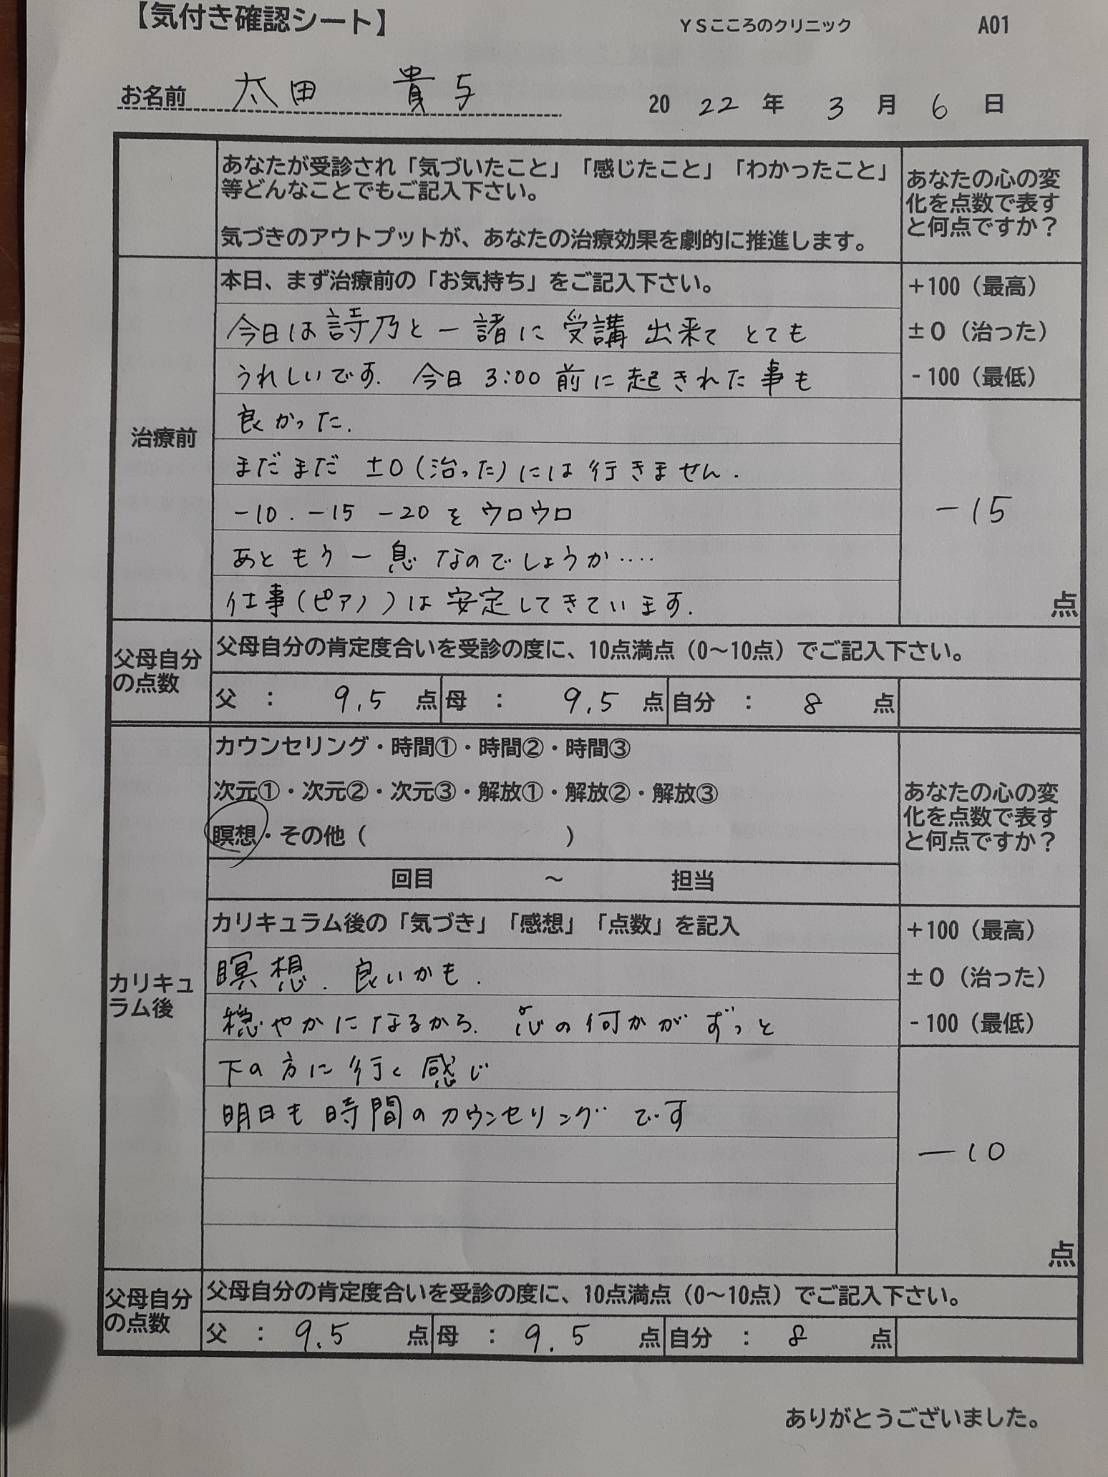 【気付き確認シート】 YSこころのクリニック A01
お名前 太田 貴与 2022年 3月 6日
あなたが受診され「気づいたこと」「感じたこと」「わかったこと」
等どんなことでもご記入下さい。
気づきのアウトプットが、あなたの治療効果を劇的に推進します。
あなたの心の変
化を点数で表す
と何点ですか？
治療前
本日、まず治療前の「お気持ち」をご記入下さい。
今日は詩乃と一諸に受講出来てとても
うれしいです. 今日 3:00前に起きれた事も
良かった.
まだまだ ±0(治った)には行きません.
-10. -15 -20をウロウロ
あともう一息なのでしょうか‥‥
仕事(ピアノ)は安定してきています.
+100（最高）
±0（治った）
-100（最低）
-15
点
父母自分
の点数
父母自分の肯定度合いを受診の度に、10点満点（0〜10点）でご記入下さい。
父 ： 9.5 点 母 ： 9.5 点 自分 ： 8 点
カリキュ
ラム後
カウンセリング・時間①・時間②・時間③
次元①・次元②・次元③・解放①・解放②・解放③
瞑想・その他（ ）
回目 〜 担当
あなたの心の変
化を点数で表す
と何点ですか？
カリキュラム後の「気づき」「感想」「点数」を記入
瞑想. 良いかも.
穏やかになるから. 心の何かがずっと
下の方に行く感じ
明日も時間のカウンセリングです
+100（最高）
±0（治った）
-100（最低）
-10
点
父母自分
の点数
父母自分の肯定度合いを受診の度に、10点満点（0〜10点）でご記入下さい。
父 ： 9.5 点 母 ： 9.5 点 自分 ： 8 点
ありがとうございました。